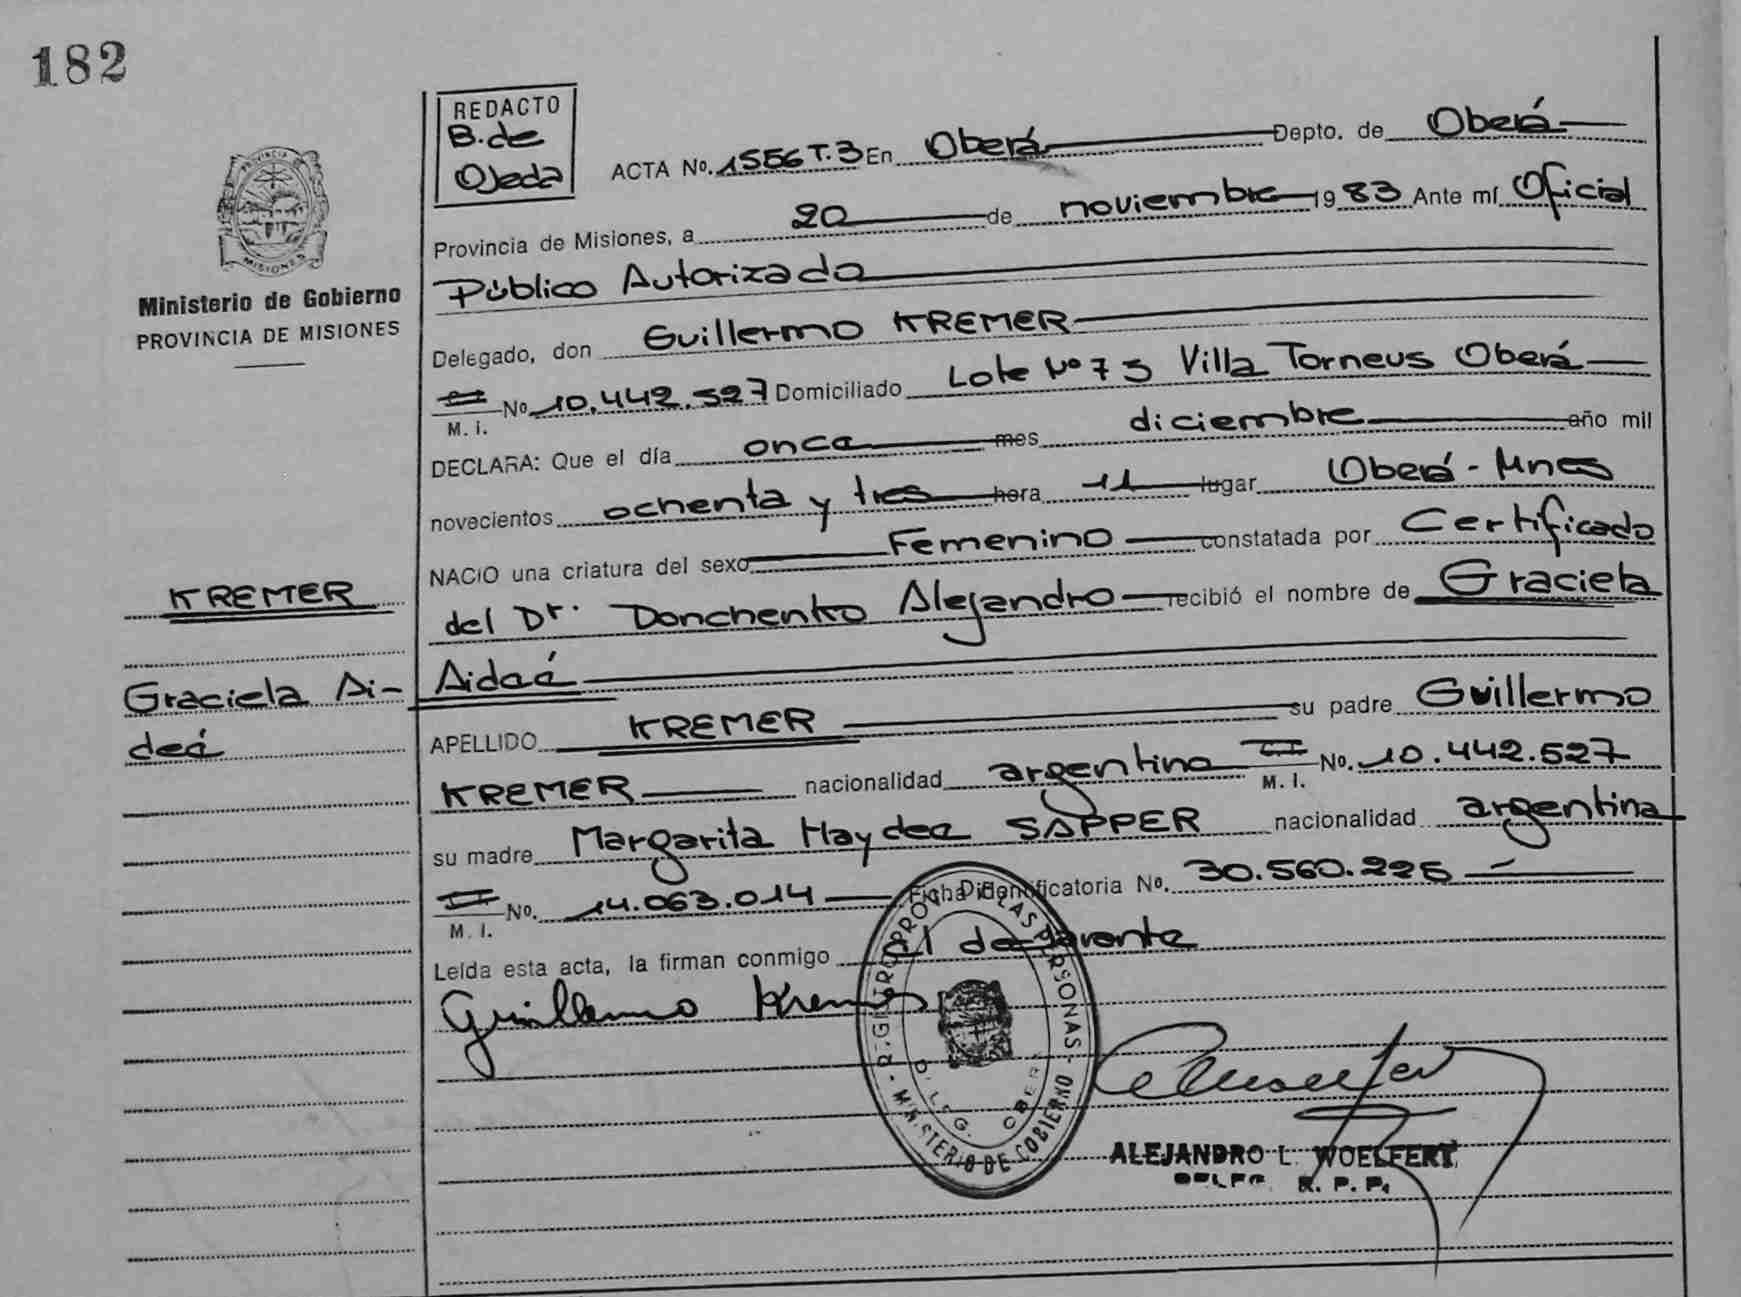 182
REDACTO
B. de
Ojeda
ACTA No. 1556 T.3 En Oberá Depto. de Oberá
Provincia de Misiones, a 20 de noviembre 1983 Ante mí Oficial
Público Autorizado
PROVINCIA DE
MISIONES
Ministerio de Gobierno
PROVINCIA DE MISIONES
Delegado, don Guillermo KREMER
M. I. No 10.442.527 Domiciliado Lote Nº 73 Villa Torneus Oberá
DECLARA: Que el día once mes diciembre año mil
novecientos ochenta y tres hora 11 lugar Oberá - Mnes
NACIO una criatura del sexo Femenino constatada por Certificado
del Dr. Donchenko Alejandro recibió el nombre de Graciela
Aideé
KREMER
Graciela Ai-
deé
APELLIDO KREMER su padre Guillermo
KREMER nacionalidad argentina M. I. No. 10.442.527
su madre Margarita Haydee SAPPER nacionalidad argentina
M. I. No. 14.063.014 Ficha Identificatoria No. 30.560.225
Leída esta acta, la firman conmigo el declarante
Guillermo Kremer
REGISTRO PROV. DE LAS PERSONAS - MINISTERIO DE GOBIERNO -
DELEG. OBERA
ALEJANDRO L. WOELFERT
DELEG. R. P. P.